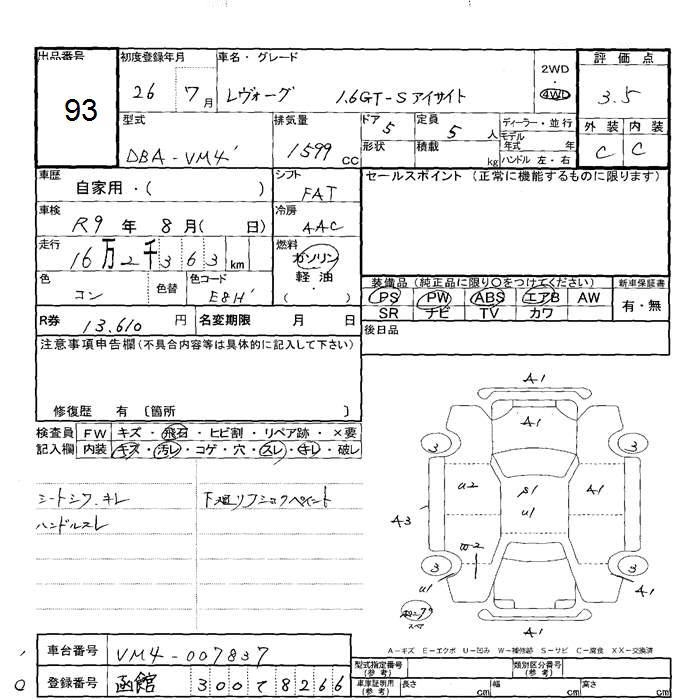 出品番号 初度登録年月 車名・グレード 評価点
93
26 7月 レヴォーグ 1.6GT-Sアイサイト 2WD ・ 4WD 3.5
型式 排気量 ドア 5 定員 5人 ディーラー・並行 外装 内装
DBA-VM4 1599 CC 形状 積載 kg モデル年式 年 C C
ハンドル 左・右
車歴 自家用・( ) シフト FAT セールスポイント (正常に機能するものに限ります)
車検 R9年 8月( 日) 冷房 AAC
走行 16万2千363 km 燃料 ガソリン 軽油 ( )
色 コン 色替 色コード E8H
装備品 (純正品に限り〇をつけてください) 新車保証書
PS PW ABS エアB AW 有・無
SR ナビ TV カワ
R券 13,610 円 名変期限 月 日 後日品
注意事項申告欄(不具合内容等は具体的に記入して下さい)
修復歴 有 〔箇所 〕
検査員 FW キズ・飛石・ヒビ割・リペア跡・×要
記入欄 内装 キズ・汚レ・コゲ・穴・スレ・キレ・破レ
シートシワ.キレ
ハンドルスレ
A1
A1
3 3
U2 S1 A1
U1
A3
W2
3 3
U1 A1
A1
A-キズ E-エクボ U-凹み W-補修跡 S-サビ C-腐食 XX-交換済
車台番号 VM4-007837
登録番号 函館 300 て 8266
型式指定番号(参考) 類別区分番号(参考)
車庫証明用(参考) 長さ cm 幅 cm 高さ cm